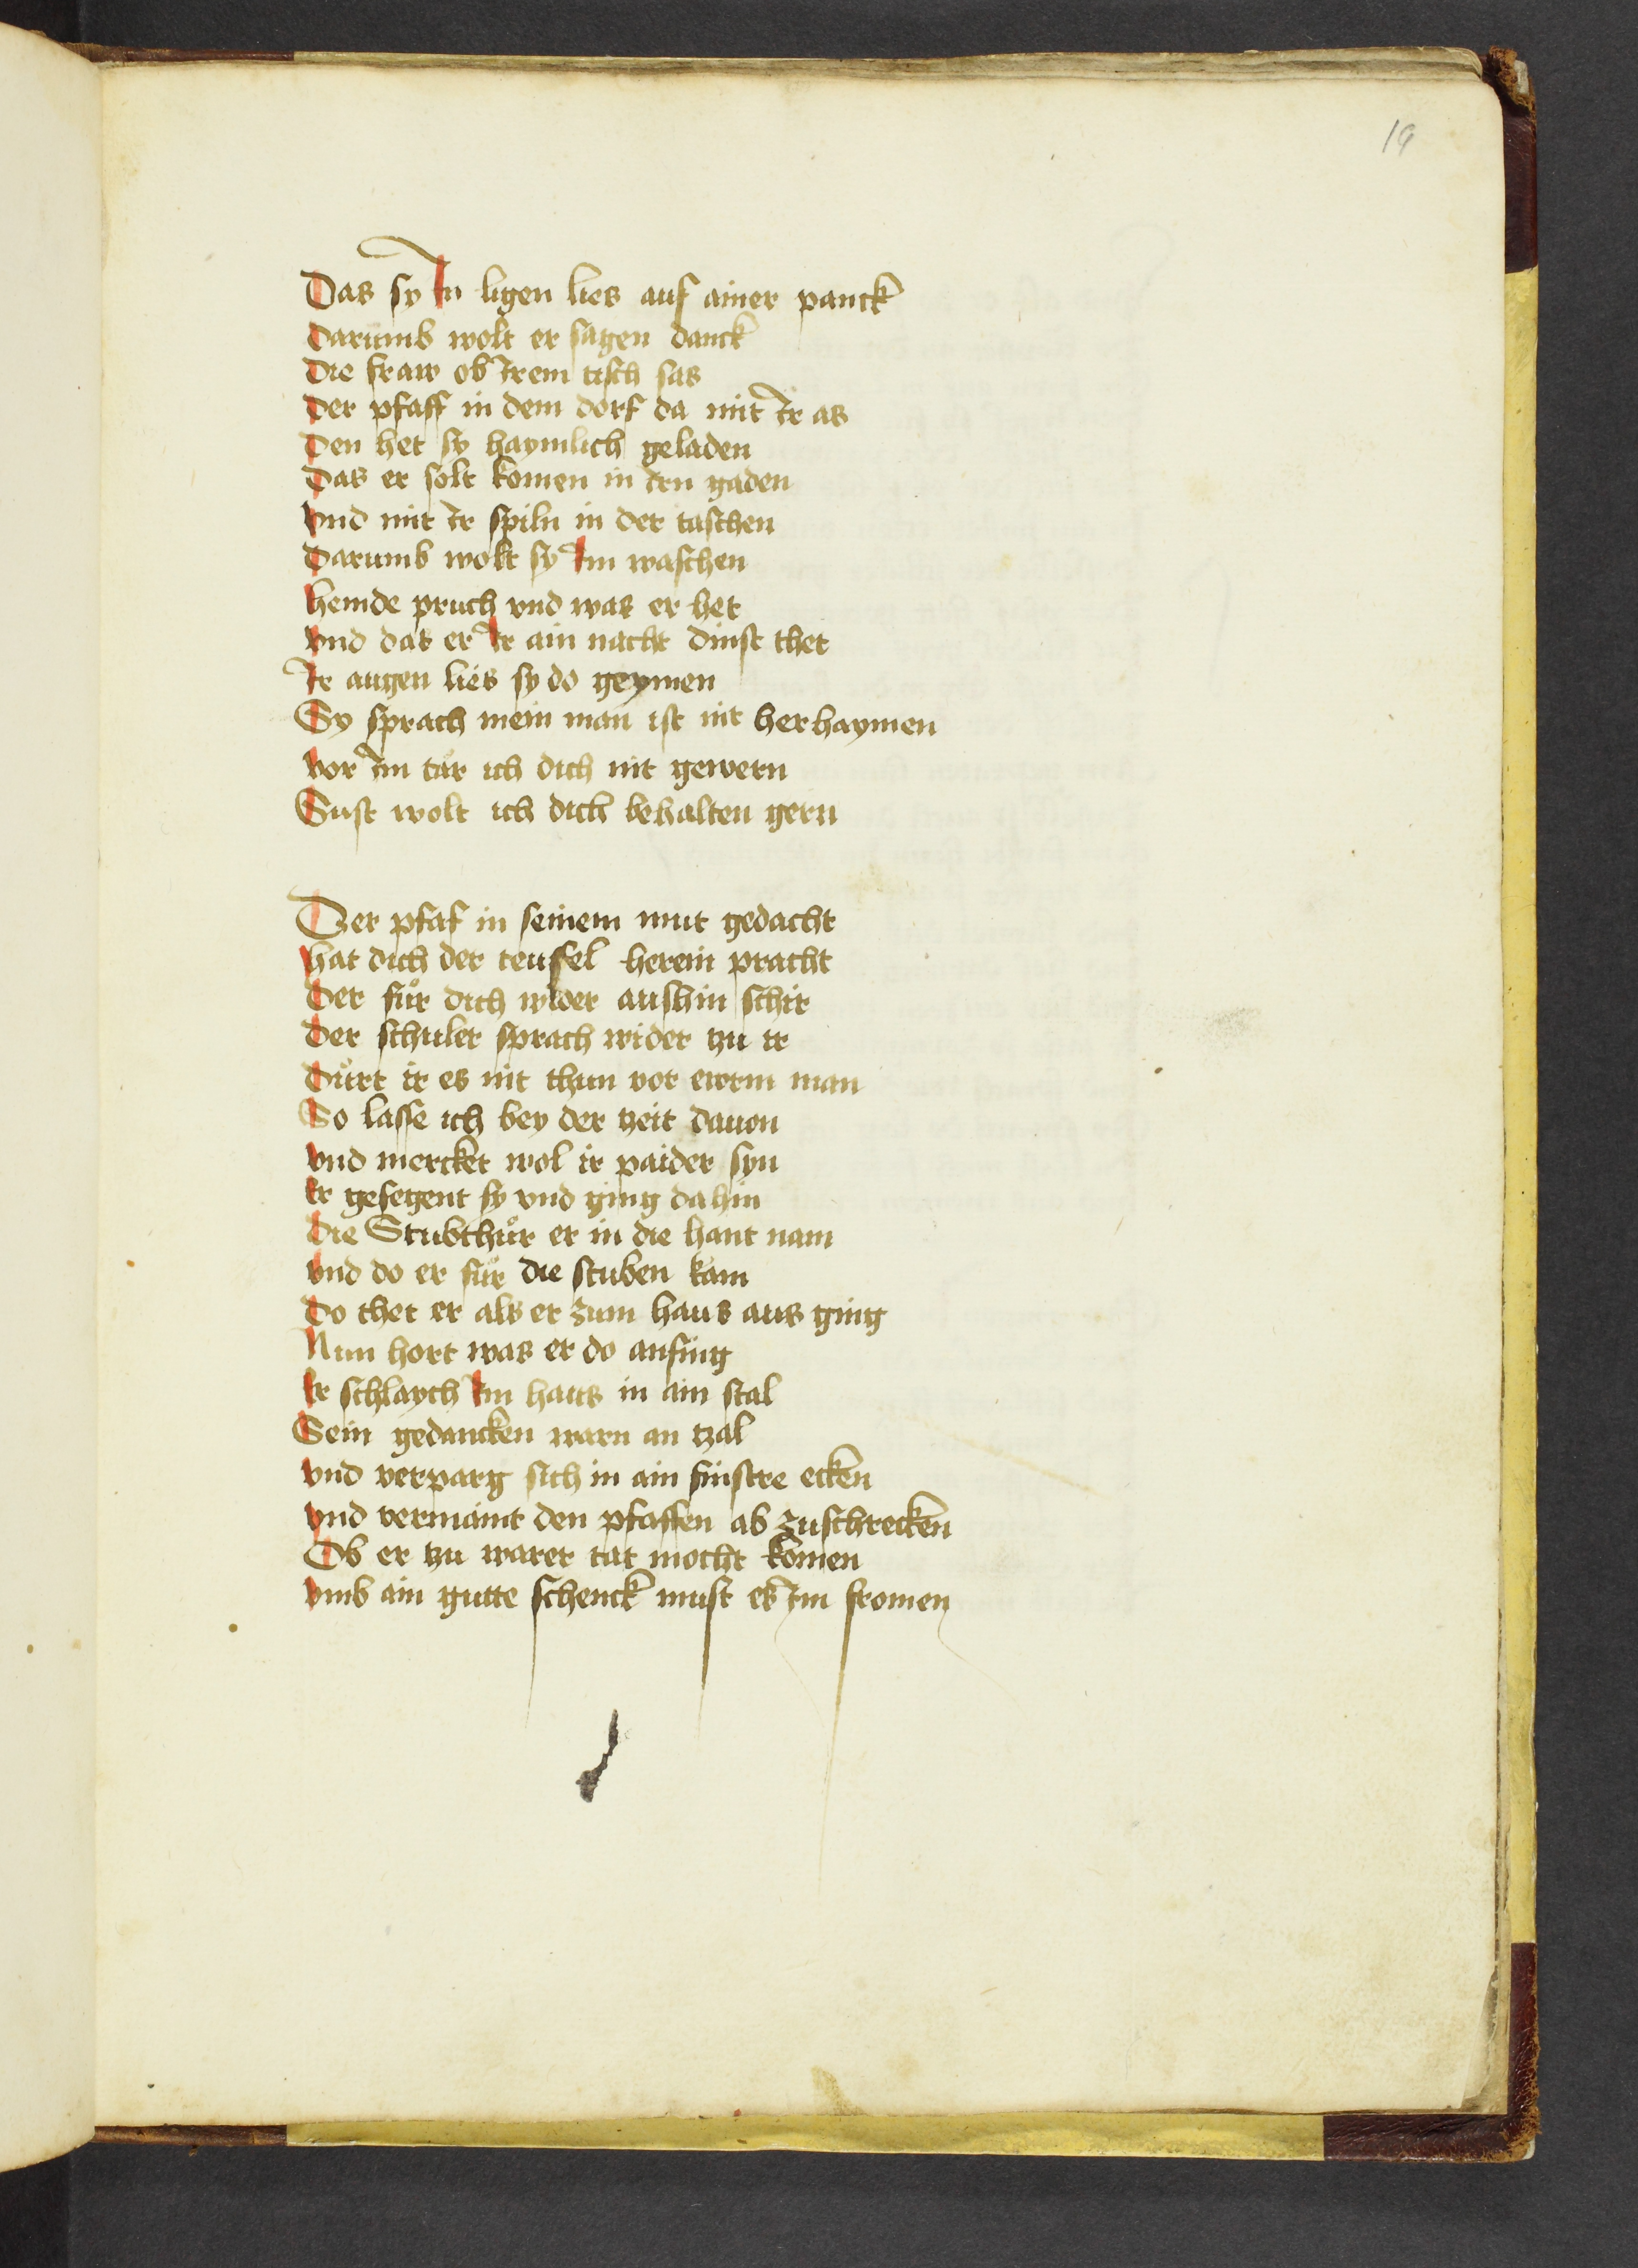 19
Das sy In ligen lies auf ainer panck
Darumb wolt er sagen danck
Die fraw ob Irem tisch sas
Der pfaff in dem dorf da mit Ir as
Den het sy haymlich geladen
Das er solt komen in irn gaden
vnd mit Ir spiln in der taschen
Darumb wolt sy Im waschen
hemde pruch vnd was er het
vnd das er Ir ain nacht dinst thet
Ir augen lies sy do geymen
Sy sprach mein man ist nit herhaymen
vor Im tůr ich dich nit gewern
Sust wolt ich dich behalten gern
Der pfaf in seinem mut gedacht
hat dich der teuffel herein pracht
Der für dich wider aushin schir
Der schuler sprach wider tzu ir
Důrt ir es nit thun vor ewrm man
So lasse ich bey der tzeit dauon
vnd mercket wol ir paider syn
Er gesegent sy vnd ging dahin
Die Stubthůr er in die hant nam
vnd do er fůr die stuben kam
Do thet er als er zum haus aus ging
Nun hort was er do anfing
Er schlaych Im haus in ain stal
Sein gedancken warn an tzal
vnd verparg sich in ain finstre ecken
vnd vermaint den pfaffen ab zuschrecken
Ob er tzu warer tat mocht komen
vmb ain gutte schenck must es Im fromen